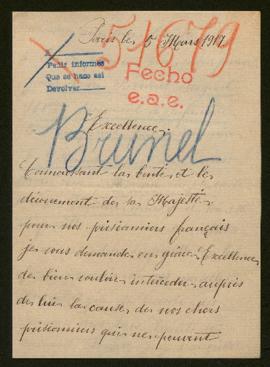 51679
Paris le, 5 Mars 1917
Pedir informes
Que se hace así
Devolver
Fecho
e.a.e.
Excellence,
Brunel
Connaissant la bonté et le
dévouement de sa Majesté
pour nos prisonniers français
je vous demande en grâce Excellence
de bien vouloir intercéder auprès
de lui la cause de nos chers
prisonniers qui ne peuvent